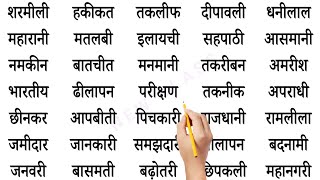 शरमीली हकीकत तकलीफ दीपावली धनीलाल
महारानी मतलबी इलायची सहपाठी आसमानी
नमकीन बातचीत मनमानी तकरीबन अमरीश
भारतीय ढीलापन परीक्षण तकनीक अपराधी
छीनकर आपबीती पिचकारी राजधानी रामलीला
जमीदार जानकारी समझदारी लापन बदनामी
जनवरी बासमती बढ़ोतरी छिपकली महानगरी